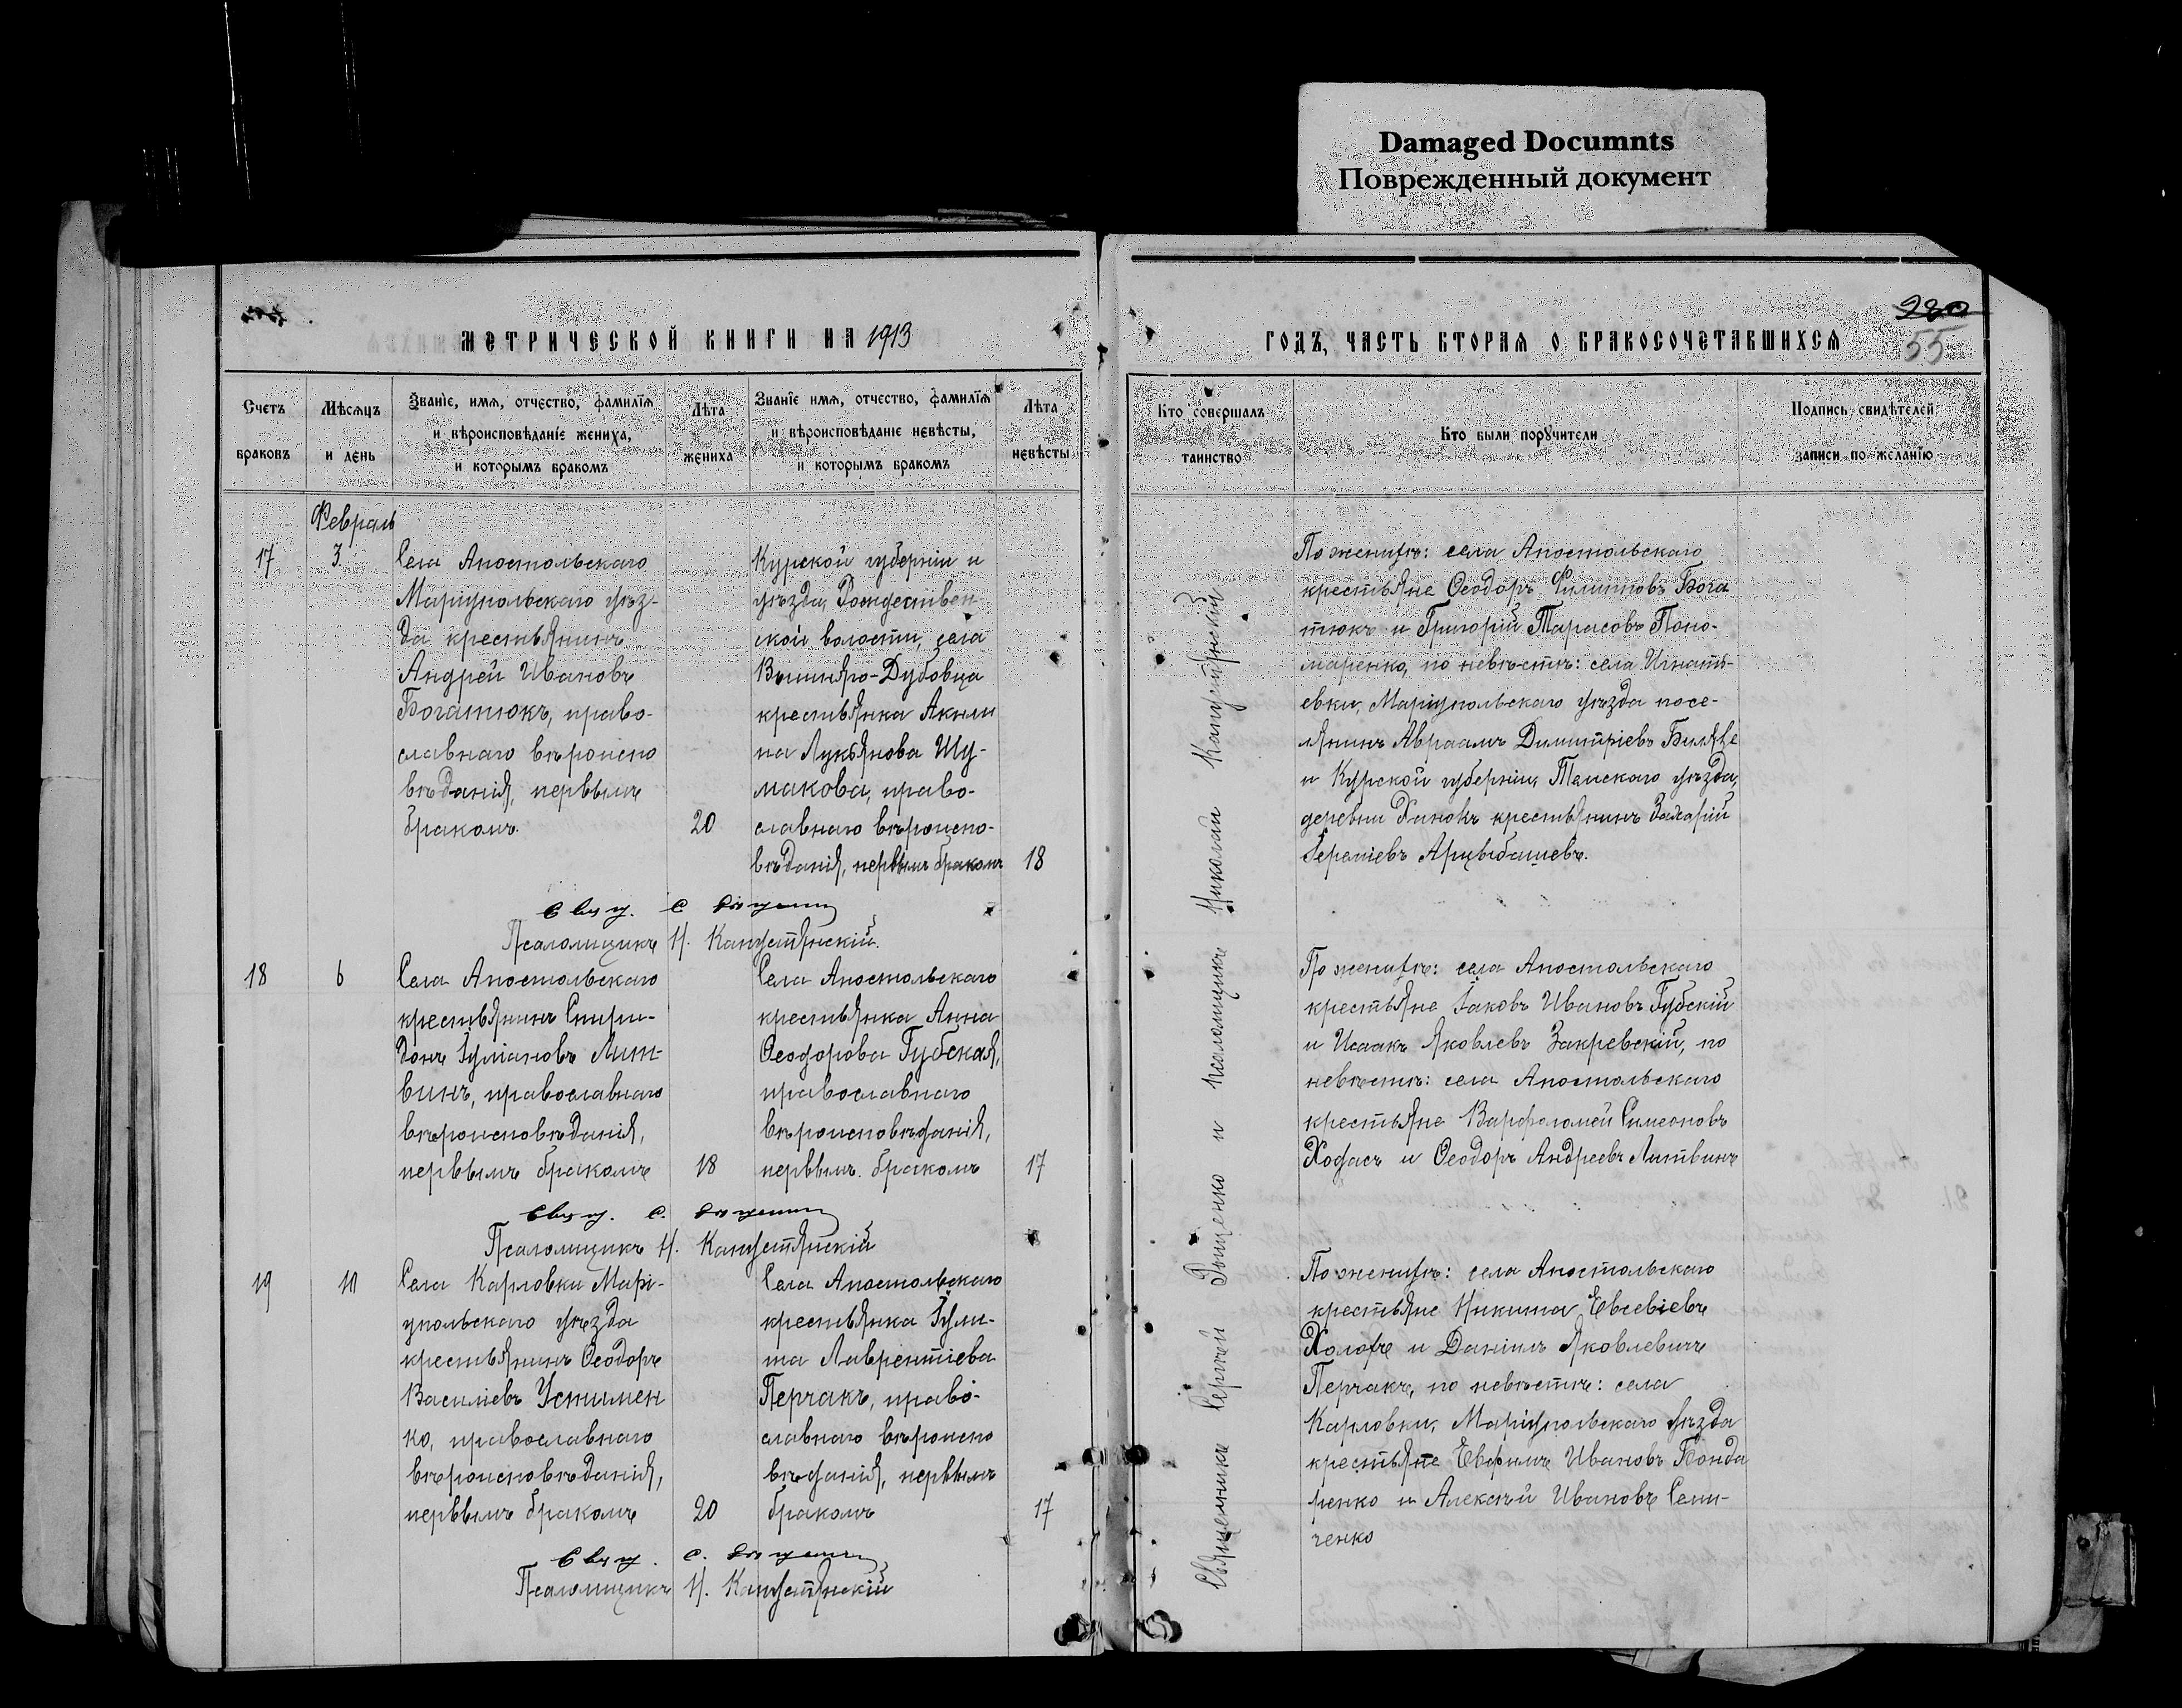 Damaged Documnts
Поврежденный документ
МЕТРИЧЕСКОЙ КНИГИ НА 1913
ГОДЪ, ЧАСТЬ ВТОРАЯ О БРАКОСОЧЕТАВШИХСЯ
280
55
Счетъ
браковъ
Мѣсяцъ
и день
Званіе, имя, отчество, фамилія
и вѣроисповѣданіе жениха,
и которымъ бракомъ
Лѣта
жениха
Званіе имя, отчество, фамилія
и вѣроисповѣданіе невѣсты,
и которымъ бракомъ
Лѣта
невѣсты
Кто совершалъ
таинство
Кто были поручители
Подпись свидѣтелей
записи по желанію
Февраль
17
3.
Села Апостольскаго
Маріупольскаго уѣз-
да крестьянинъ
Андрей Ивановъ
Богатюкъ, право-
славнаго вѣроиспо
вѣданія, первымъ
бракомъ.
20
Курской губерніи и
уѣзда, Рождествен-
ской волости, села
крестьянка Акили
на Лукьянова Шу-
макова, право-
славнаго вѣроиспо-
вѣданія, первымъ бракомъ
18
По женихѣ: села Апостольскаго
крестьяне Ѳеодоръ Филипповъ Бога
тюкъ и Григорій Тарасовъ Поно-
маренко, по невѣстѣ: села Игнатъ-
евки, Маріупольскаго уѣзда посе-
лянинъ Авраамъ Димитріевъ
и Курской губерніи, уѣзда,
деревни крестьянинъ Захарій
Арцыбашевъ.
Псаломщикъ Н.
18
6
Села Апостольскаго
крестьянинъ Спири-
донъ Іуліановъ Лит-
винъ, православнаго
вѣроисповѣданія,
первымъ бракомъ
18
Села Апостольскаго
крестьянка Анна
Ѳеодорова Губская,
православнаго
вѣроисповѣданія,
первымъ бракомъ
17
По женихѣ: села Апостольскаго
крестьяне Іаковъ Ивановъ Губскій
и Исаакъ Яковлевъ Закревскій, по
невѣстѣ: села Апостольскаго
крестьяне Варфоломей Симеоновъ
и Ѳеодоръ Андреевъ Литвинъ
Псаломщикъ Н.
19
10
Села Карловки Марі-
упольскаго уѣзда
крестьянинъ Ѳеодоръ
Василіевъ Устимен
ко, православнаго
вѣроисповѣданія,
первымъ бракомъ
20
Села Апостольскаго
крестьянка Іули-
та Лаврентіева
Перчакъ, право-
славнаго вѣроиспо
вѣданія, первымъ
бракомъ
17
По женихѣ: села Апостольскаго
крестьяне Никита Евсевіевъ
и Даніилъ Яковлевичъ
Перчакъ, по невѣстѣ: села
Карловки, Маріупольскаго уѣзда
крестьяне Евфимъ Ивановъ Бонда
ренко и Алексѣй Ивановъ Семи-
ченко
Псаломщикъ Н.
Священникъ Сергей и псаломщикъ Николай